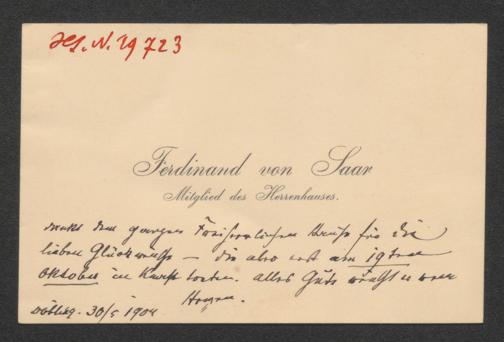 Hs. N. 29723
Ferdinand von Saar
Mitglied des Herrenhauses.
dankt dem ganzen für die
lieben Glückwünsche — die also erst am 19ten
Oktober in Kraft treten. Alles Gute wünscht er vom
Herzen.
Döbling. 30/5 1904